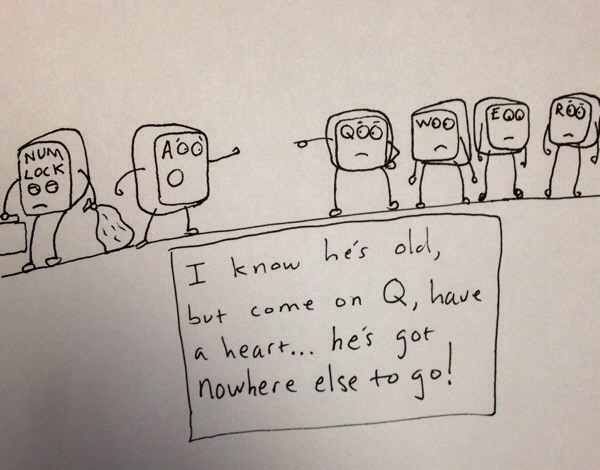 NUM
LOCK
A
Q
W
E
R
I know he's old,
but come on Q, have
a heart... he's got
nowhere else to go!